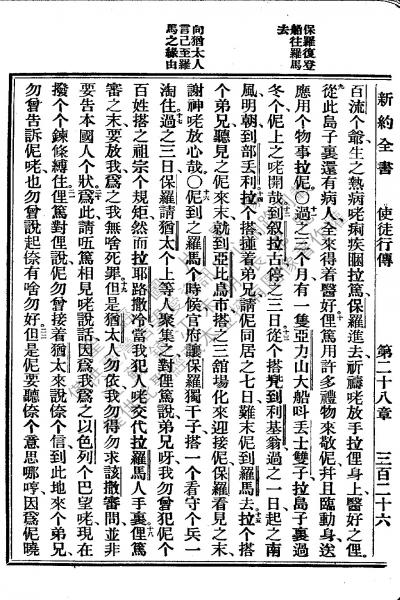 新約全書　使徒行傳　第二十八章　三百二十六
保羅復登
船往羅馬
去
向猶太人
言己至羅
馬之緣由
百流个爺生之熱病咾痢疾睏拉篤保羅進去祈禱咾放手拉俚身上醫好之俚
九從此島子裏還有病人全來得着醫好俚篤用許多禮物來敬伲幷且臨動身送
應用个物事拉伲〇十一過之三个月有一隻亞力山大船呌丟士雙子拉島子裏過
冬个伲上之咾開哉十二到叙拉古停之三日十三從个搭兜到利基翁過之一日起之南
風明朝到部丟利十四拉个搭撞着弟兄請伲同居之七日難末伲到羅馬去十五个搭
个弟兄聽見之伲來末就到亞比烏市搭之三舘塲化來迎接伲保羅看見之末
謝神咾放心哉〇十六伲到之羅馬个時候官府讓保羅獨干子搭一个看守个兵一
淘住十七過之三日保羅請猶太个上等人聚集之對俚篤說弟兄呀我勿曾犯伲个
百姓搭之祖宗个規矩然而拉耶路撒冷當我犯人咾交代拉羅馬人手裏十八俚篤
審之末要放我爲之我無啥死罪十九但是猶太人勿依我勿得勿求該撒審問並非
要告本國人个狀二十爲此請㑚篤相見咾說話因爲我爲之以色列个巴望咾現在
撥个个鍊條縛住二十一俚篤對俚說伲勿曾接着猶太來說倷个信到此地來个弟兄
勿曾告訴伲咾也勿曾說起倷有啥勿好二十二但是伲要聽倷个意思哪哼因爲伲曉